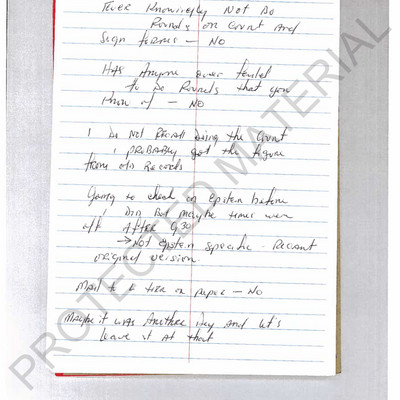 Ever Knowingly Not Do
Rounds or Count and
Sign forms — NO
Has Anyone ever failed
to do Rounds that you
know of — NO
I Do Not Recall Doing the Count
I PROBABLY got the figure
from old Records
Going to check on Epstein before
I Did But maybe times were
off After 930
→ Not Epstein Specific. Recant
original version.
tier or paper — NO
Maybe it was Another Day and let's
leave it at that
PROTECTED MATERIAL